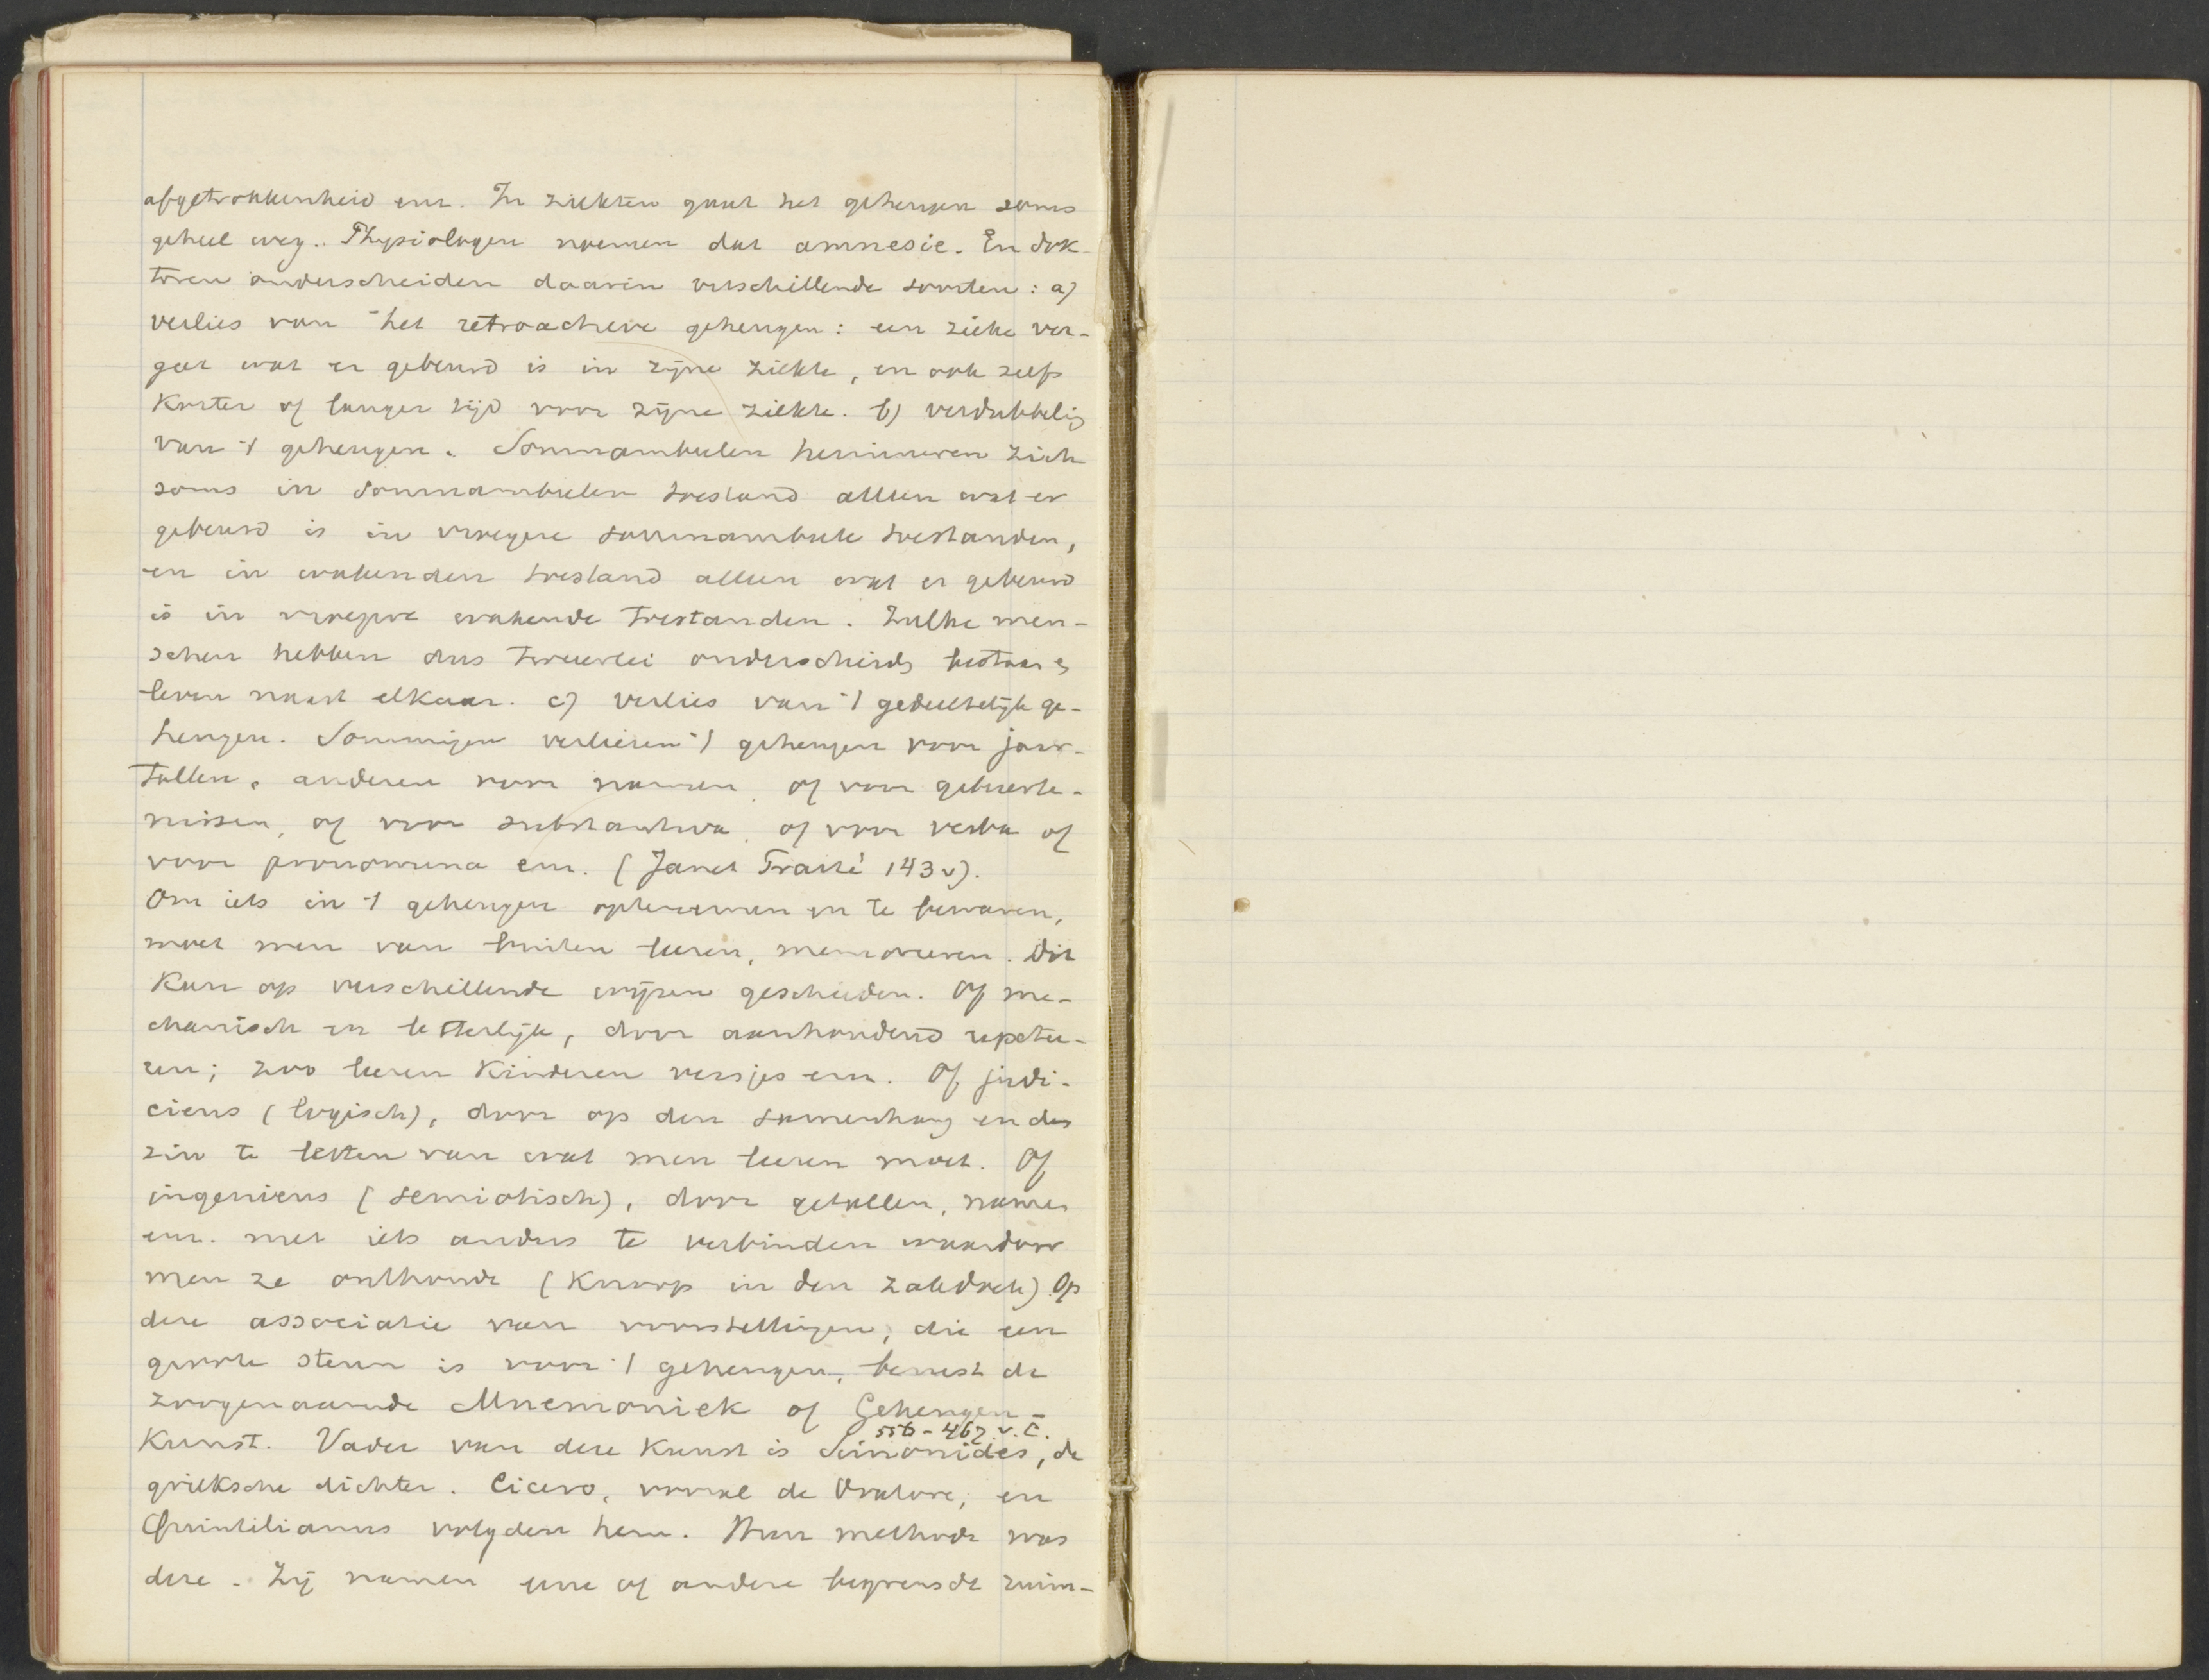 afgetrokkenheid enz. In ziekten gaat het geheugen soms
geheel weg. Physiologen noemen dat amnesie. En dok-
toren onderscheiden daarin verschillende soorten: a)
verlies van het retroactieve geheugen: een zieke ver-
gat wat er gebeurd is in zijne ziekte, en ook zelfs
korter of langer tijd voor zijne ziekte. b) verdubbelig
van 't geheugen. Somnambulen herinneren zich
soms in somnambulen toestand alleen wat er
gebeurd is in vroegere somnambule toestanden,
en in wakenden toestand alleen wat er gebeurd
is in vroegere wakende toestanden. Zulke men-
schen hebben dus tweeërlei onderscheidn bestaan en
leven naast elkaar. c) verlies van 't gedeeltelijk ge-
heugen. Sommigen verliezen 't geheugen voor jaar-
tallen, anderen voor namen, of voor gebeurte-
nissen, of voor substantiva, of voor verba of
voor pronomina enz. (Janet Traité 143v).
Om iets in 't geheugen optenemen en te bewaren,
moet men van buiten leeren, memoreeren. Dit
kan op verschillende wijzen geschieden. Of me-
chanisch en letterlijk, door aanhoudend repetee-
ren; zoo leeren kinderen versjes enz. Of judi-
cieus (logisch), door op den samenhang en den
zin te letten van wat men leeren moet. Of
ingenieus (semiotisch), door getallen, namen
enz. met iets anders te verbinden waardoor
men ze onthoudt (Knoop in den zakdoek) Op
deze associatie van voorstellingen, die een
groote steun is voor 't geheugen, berust de
zoogenaamde Mnemoniek of Geheugen-
556-467 v. C.
kunst. Vader van deze kunst is Simonides, de
grieksche dichter. Cicero, vooral de Oratore, en
Quintilianus volgden hem. Hun methode was
deze. Zij namen eene of andere begrensde ruim-